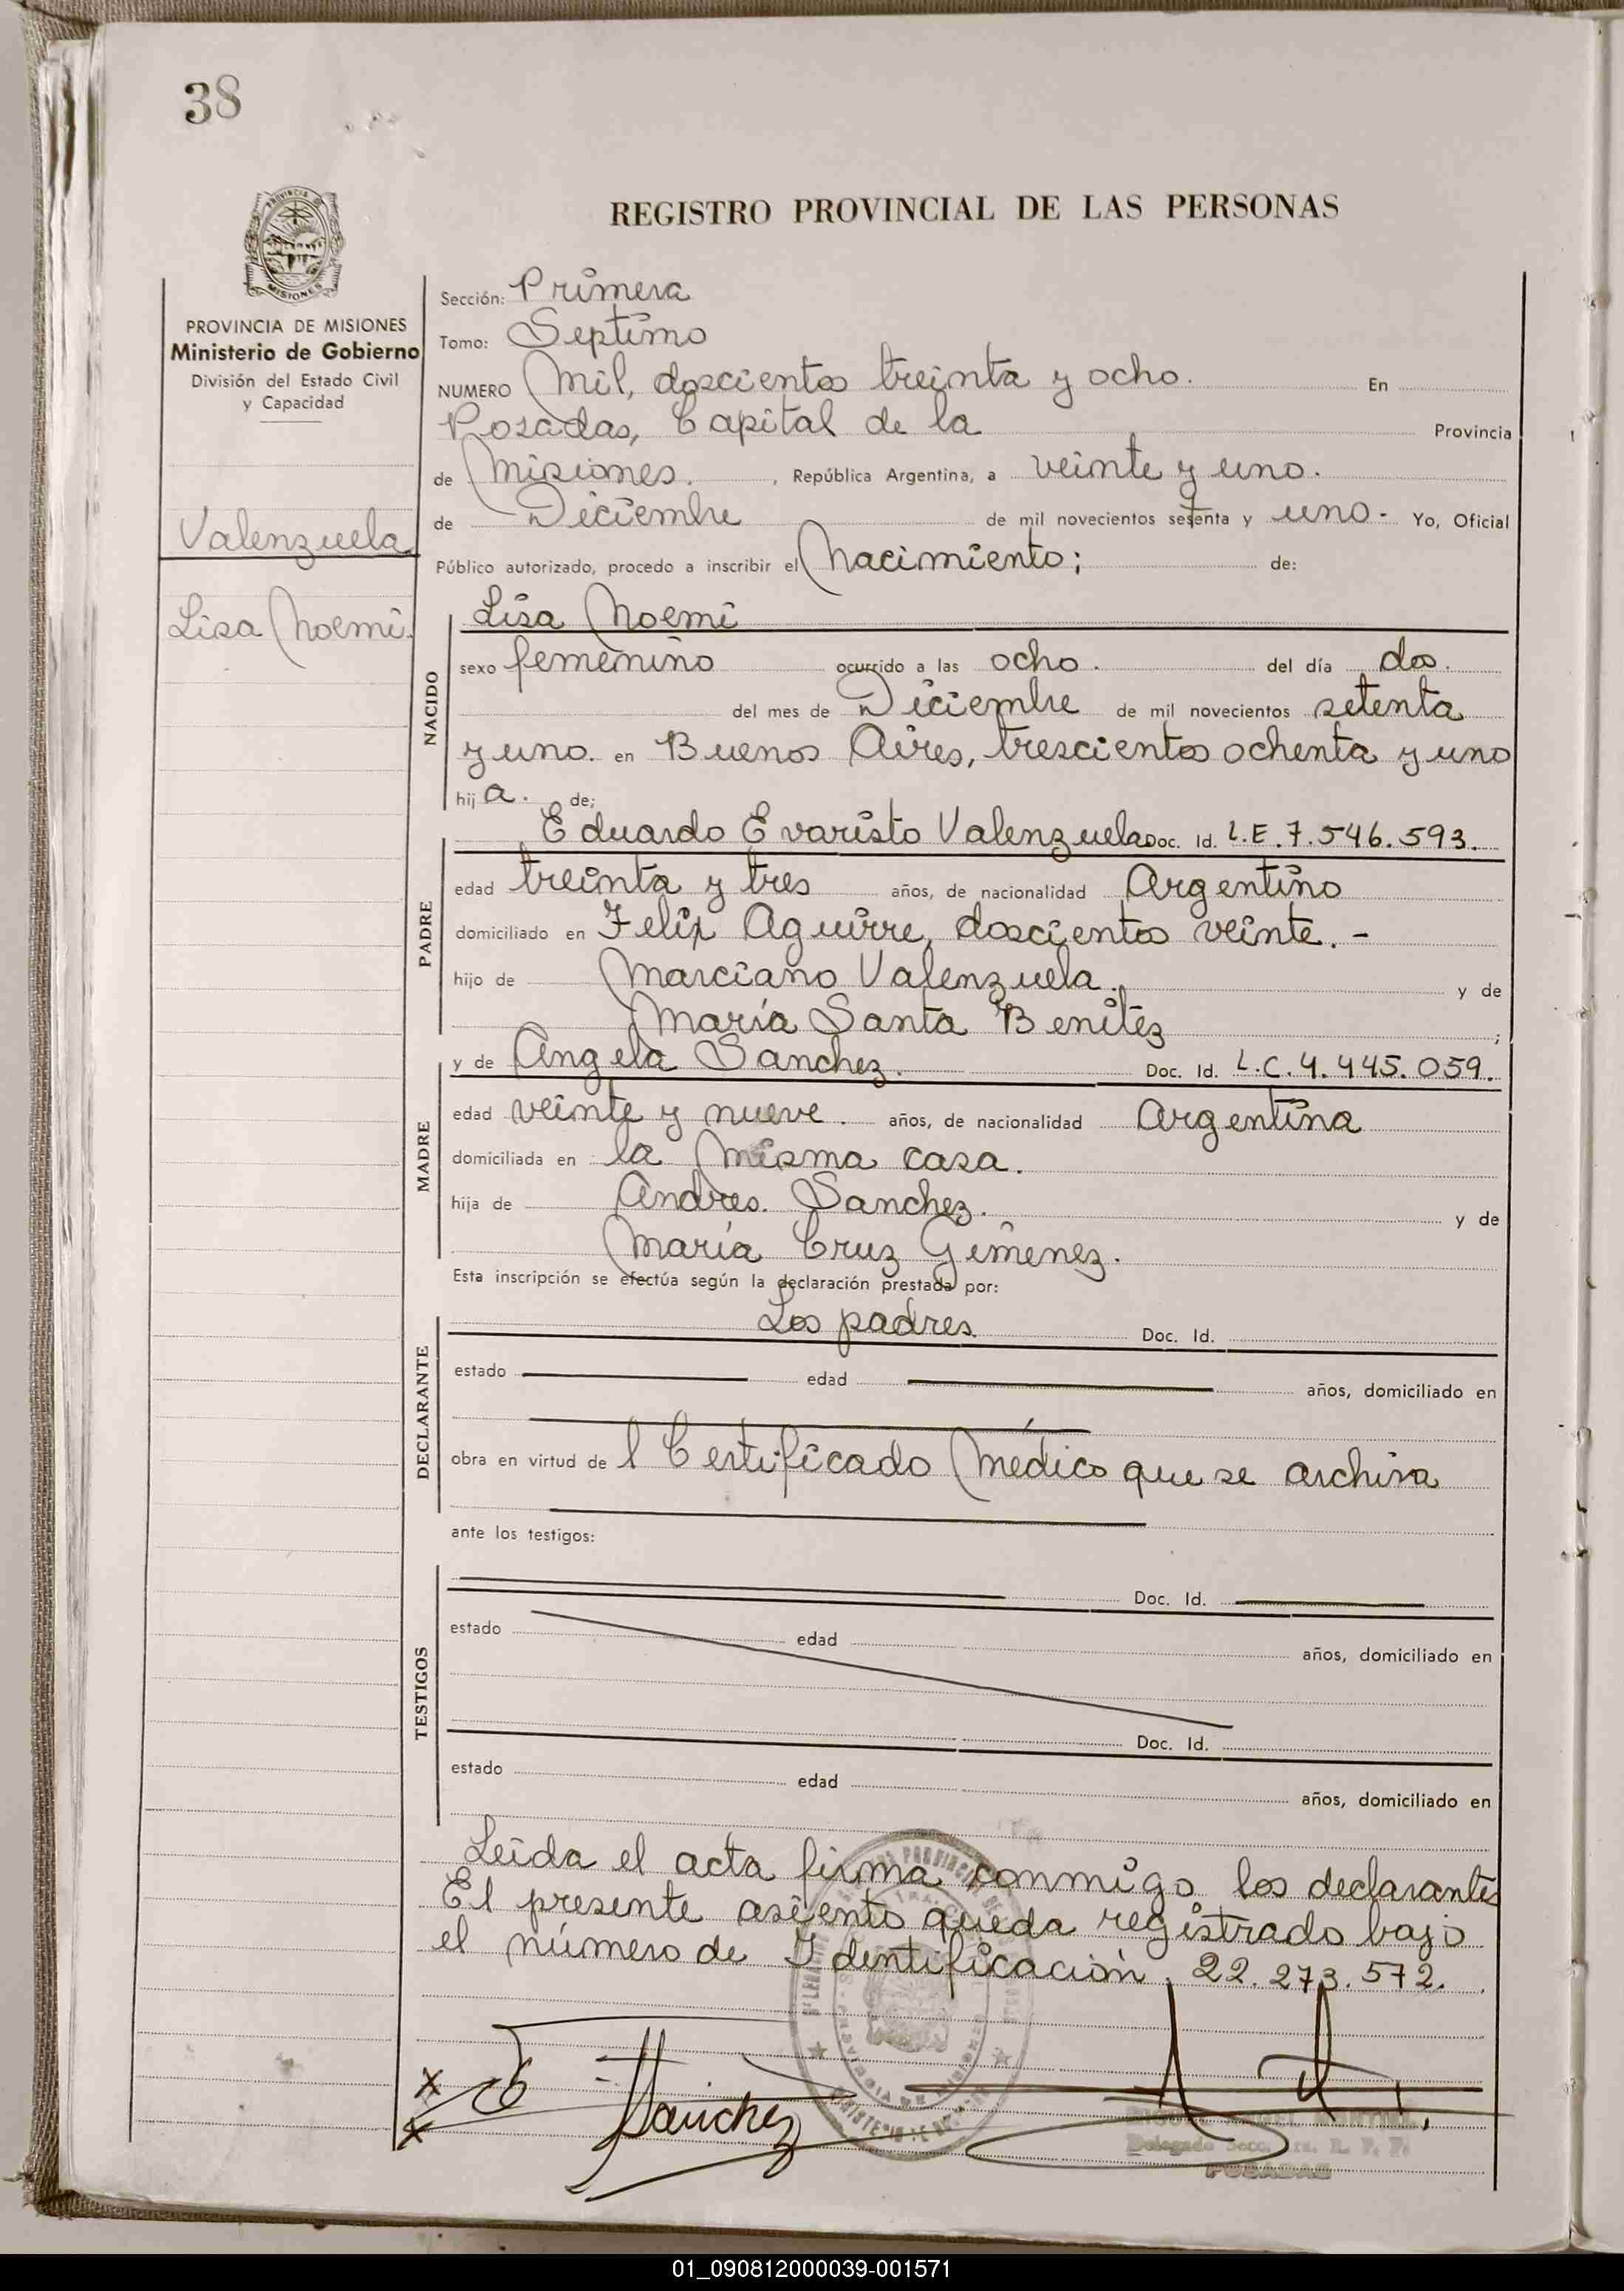 38
REGISTRO PROVINCIAL DE LAS PERSONAS
PROVINCIA DE MISIONES
Ministerio de Gobierno
División del Estado Civil
y Capacidad
Valenzuela
Lisa Noemi.
Sección: Primera
Tomo: Septimo
NUMERO Mil, doscientos treinta y ocho. En
Posadas, Capital de la Provincia
de Misiones. , República Argentina, a veinte y uno.
de Diciembre de mil novecientos setenta y uno - Yo, Oficial
Público autorizado, procedo a inscribir el Nacimiento; de:
NACIDO
Lisa Noemi
sexo femenino ocurrido a las ocho. del día dos.
del mes de Diciembre de mil novecientos setenta
y uno. en Buenos Aires, trescientos ochenta y uno
hij a. de;
PADRE
Eduardo Evaristo Valenzuela Doc. Id. L.E. 7.546.593.
edad treinta y tres años, de nacionalidad Argentino
domiciliado en Felix Aguirre, doscientos veinte. -
hijo de Marciano Valenzuela. y de
María Santa Benitez ;
MADRE
y de Angela Sanchez. Doc. Id. L.C. 4.445.059.
edad veinte y nueve. años, de nacionalidad Argentina
domiciliada en la misma casa.
hija de Andres. Sanchez. y de
María Cruz Gimenez.
Esta inscripción se efectúa según la declaración prestada por:
DECLARANTE
Los padres. Doc. Id.
estado edad años, domiciliado en
obra en virtud de l Certificado Médico que se archiva
ante los testigos:
TESTIGOS
Doc. Id.
estado edad años, domiciliado en
Doc. Id.
estado edad años, domiciliado en
Leida el acta firma conmigo los declarantes
El presente asiento queda registrado bajo
el número de Identificación, 22.273.572.
Sanchez
Delegado Secc.
POSADAS
01_090812000039-001571